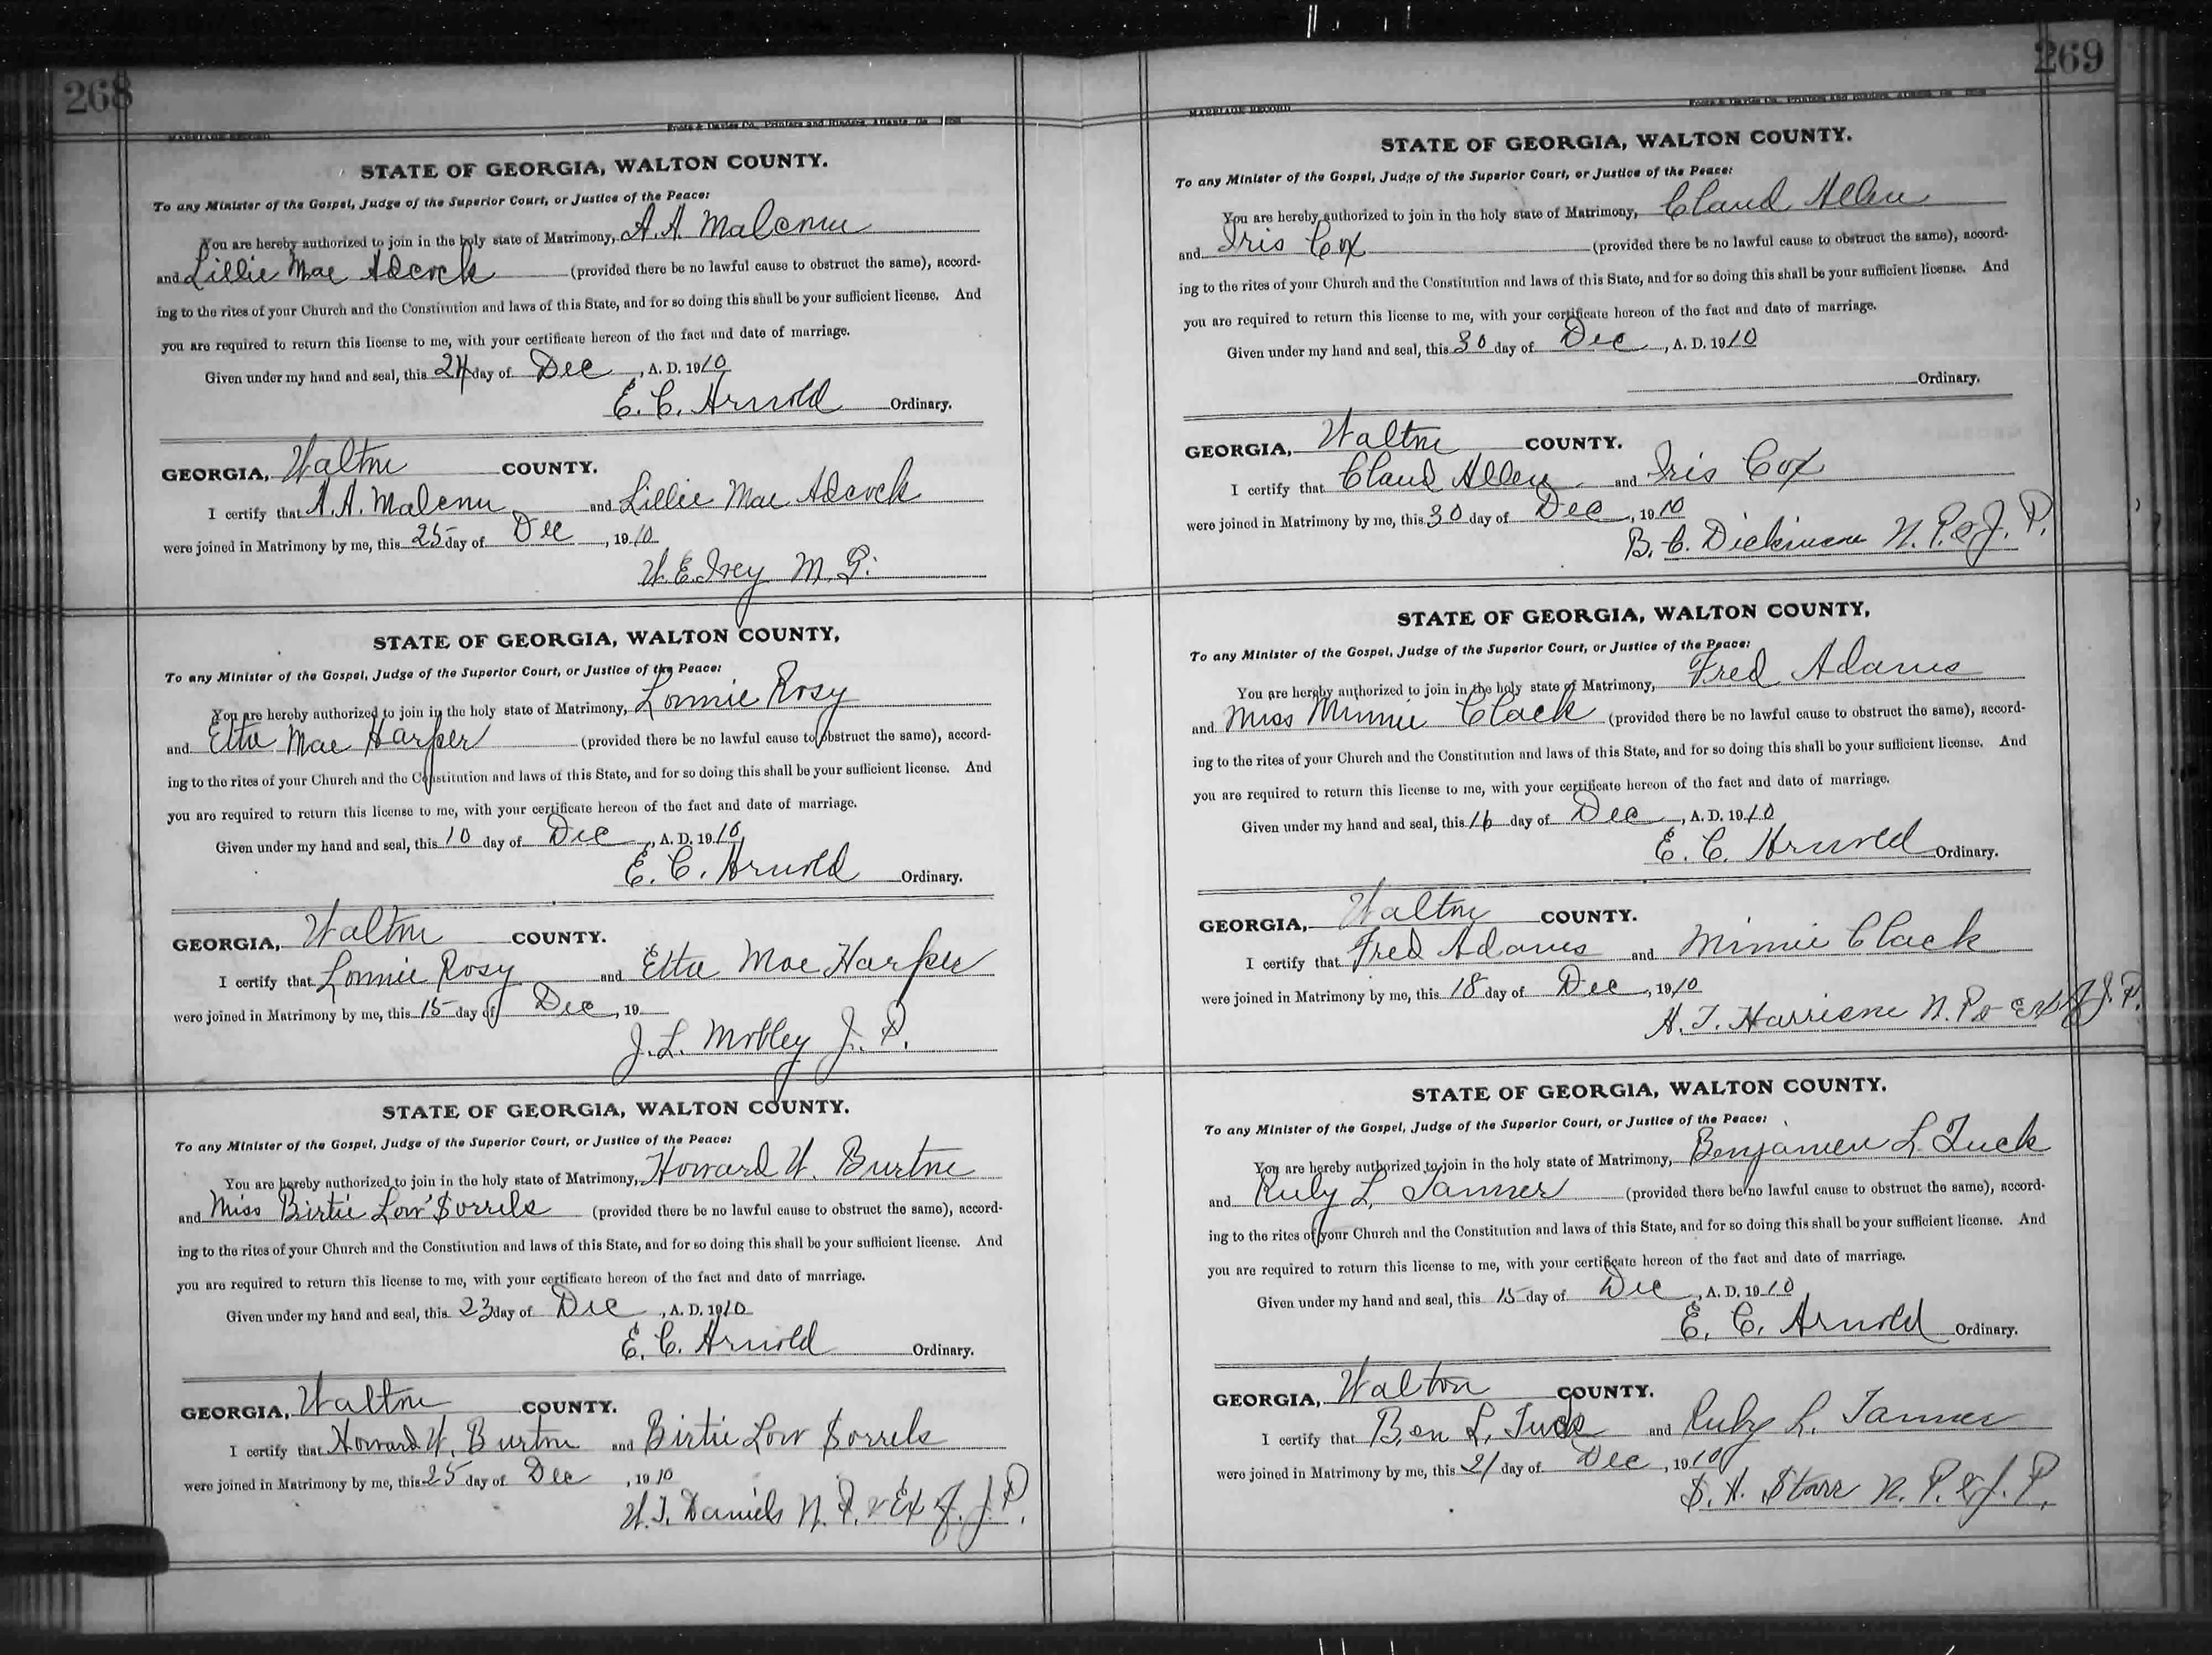 268
MARRIAGE RECORD
Foote & Davies Co., Printers and Binders, Atlanta, Ga.
STATE OF GEORGIA, WALTON COUNTY.
To any Minister of the Gospel, Judge of the Superior Court, or Justice of the Peace:
You are hereby authorized to join in the holy state of Matrimony, A. A. Malcom
and Lillie Mae Adcock (provided there be no lawful cause to obstruct the same), accord-
ing to the rites of your Church and the Constitution and laws of this State, and for so doing this shall be your sufficient license. And
you are required to return this license to me, with your certificate hereon of the fact and date of marriage.
Given under my hand and seal, this 24 day of Dec, A. D. 1910
E. C. Arnold Ordinary.
GEORGIA, Walton COUNTY.
I certify that A. A. Malcom and Lillie Mae Adcock
were joined in Matrimony by me, this 25 day of Dec, 1910
W. E. Ivey M. G.
STATE OF GEORGIA, WALTON COUNTY,
To any Minister of the Gospel, Judge of the Superior Court, or Justice of the Peace:
You are hereby authorized to join in the holy state of Matrimony, Lonnie Rosy
and Etta Mae Harper (provided there be no lawful cause to obstruct the same), accord-
ing to the rites of your Church and the Constitution and laws of this State, and for so doing this shall be your sufficient license. And
you are required to return this license to me, with your certificate hereon of the fact and date of marriage.
Given under my hand and seal, this 10 day of Dec, A. D. 1910
E. C. Arnold Ordinary.
GEORGIA, Walton COUNTY.
I certify that Lonnie Rosy and Etta Mae Harper
were joined in Matrimony by me, this 15 day of Dec, 19
J. L. Mobley J. P.
STATE OF GEORGIA, WALTON COUNTY.
To any Minister of the Gospel, Judge of the Superior Court, or Justice of the Peace:
You are hereby authorized to join in the holy state of Matrimony, Howard W. Burton
and Miss Birtie Low Sorrels (provided there be no lawful cause to obstruct the same), accord-
ing to the rites of your Church and the Constitution and laws of this State, and for so doing this shall be your sufficient license. And
you are required to return this license to me, with your certificate hereon of the fact and date of marriage.
Given under my hand and seal, this 23 day of Dec, A. D. 1910
E. C. Arnold Ordinary.
GEORGIA, Walton COUNTY.
I certify that Howard W. Burton and Birtie Low Sorrels
were joined in Matrimony by me, this 25 day of Dec, 1910
W. T. Daniels N. P. & Ex Of. J. P.
269
MARRIAGE RECORD
Foote & Davies Co., Printers and Binders, Atlanta, Ga.
STATE OF GEORGIA, WALTON COUNTY.
To any Minister of the Gospel, Judge of the Superior Court, or Justice of the Peace:
You are hereby authorized to join in the holy state of Matrimony, Claud Allen
and Iris Cox (provided there be no lawful cause to obstruct the same), accord-
ing to the rites of your Church and the Constitution and laws of this State, and for so doing this shall be your sufficient license. And
you are required to return this license to me, with your certificate hereon of the fact and date of marriage.
Given under my hand and seal, this 30 day of Dec, A. D. 1910
Ordinary.
GEORGIA, Walton COUNTY.
I certify that Claud Allen and Iris Cox
were joined in Matrimony by me, this 30 day of Dec, 1910
B. C. Dickinson N. P. & J. P.
STATE OF GEORGIA, WALTON COUNTY,
To any Minister of the Gospel, Judge of the Superior Court, or Justice of the Peace:
You are hereby authorized to join in the holy state of Matrimony, Fred Adams
and Miss Minnie Clack (provided there be no lawful cause to obstruct the same), accord-
ing to the rites of your Church and the Constitution and laws of this State, and for so doing this shall be your sufficient license. And
you are required to return this license to me, with your certificate hereon of the fact and date of marriage.
Given under my hand and seal, this 16 day of Dec, A. D. 1910
E. C. Arnold Ordinary.
GEORGIA, Walton COUNTY.
I certify that Fred Adams and Minnie Clack
were joined in Matrimony by me, this 18 day of Dec, 1910
H. T. Harrison N. P. & Ex Of J. P.
STATE OF GEORGIA, WALTON COUNTY.
To any Minister of the Gospel, Judge of the Superior Court, or Justice of the Peace:
You are hereby authorized to join in the holy state of Matrimony, Benjamen L. Tuck
and Ruby L. Tanner (provided there be no lawful cause to obstruct the same), accord-
ing to the rites of your Church and the Constitution and laws of this State, and for so doing this shall be your sufficient license. And
you are required to return this license to me, with your certificate hereon of the fact and date of marriage.
Given under my hand and seal, this 15 day of Dec, A. D. 1910
E. C. Arnold Ordinary.
GEORGIA, Walton COUNTY.
I certify that Ben L. Tuck and Ruby L. Tanner
were joined in Matrimony by me, this 21 day of Dec, 1910
S. H. Starr N. P. & J. P.